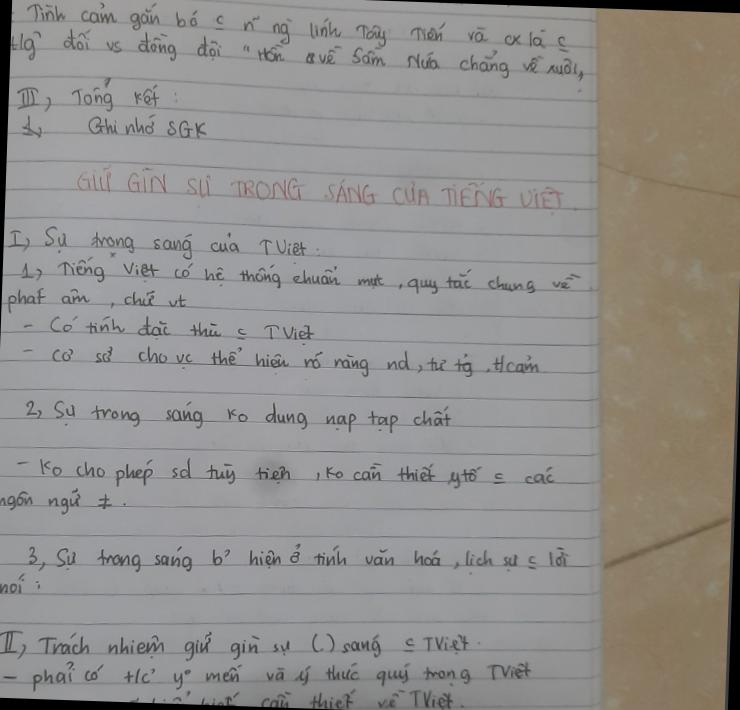 Tình cảm gắn bó c̲ n~ ng lính Tây Tiến và cx là c̲
đối vs đồng đội "Hồn về Sầm Nứa chẳng về xuôi,,
III, Tổng kết :
1, Ghi nhớ SGK
GIỮ GÌN SỰ TRONG SÁNG CỦA TIẾNG VIỆT.
I, Sự trong sáng của TViệt.
1, Tiếng Việt có hệ thống chuẩn mực, quy tắc chung về
phát âm, chữ vt
- Có tính đặc thù c̲ TViệt
- cơ sở cho vc thể hiện rõ ràng nd, tư tg, t/cảm
2, Sự trong sáng ko dung nạp tạp chất
- Ko cho phép sd tùy tiện, ko cần thiết ytố c̲ các
ngôn ngữ ≠.
3, Sự trong sáng b' hiện ở tính văn hoá, lịch sự c̲ lời
nói :
II, Trách nhiệm giữ gìn sự ( ) sáng c̲ TViệt.
- phải có t/c' yº mến và ý thức quý trọng TViệt
cần thiết về TViệt.